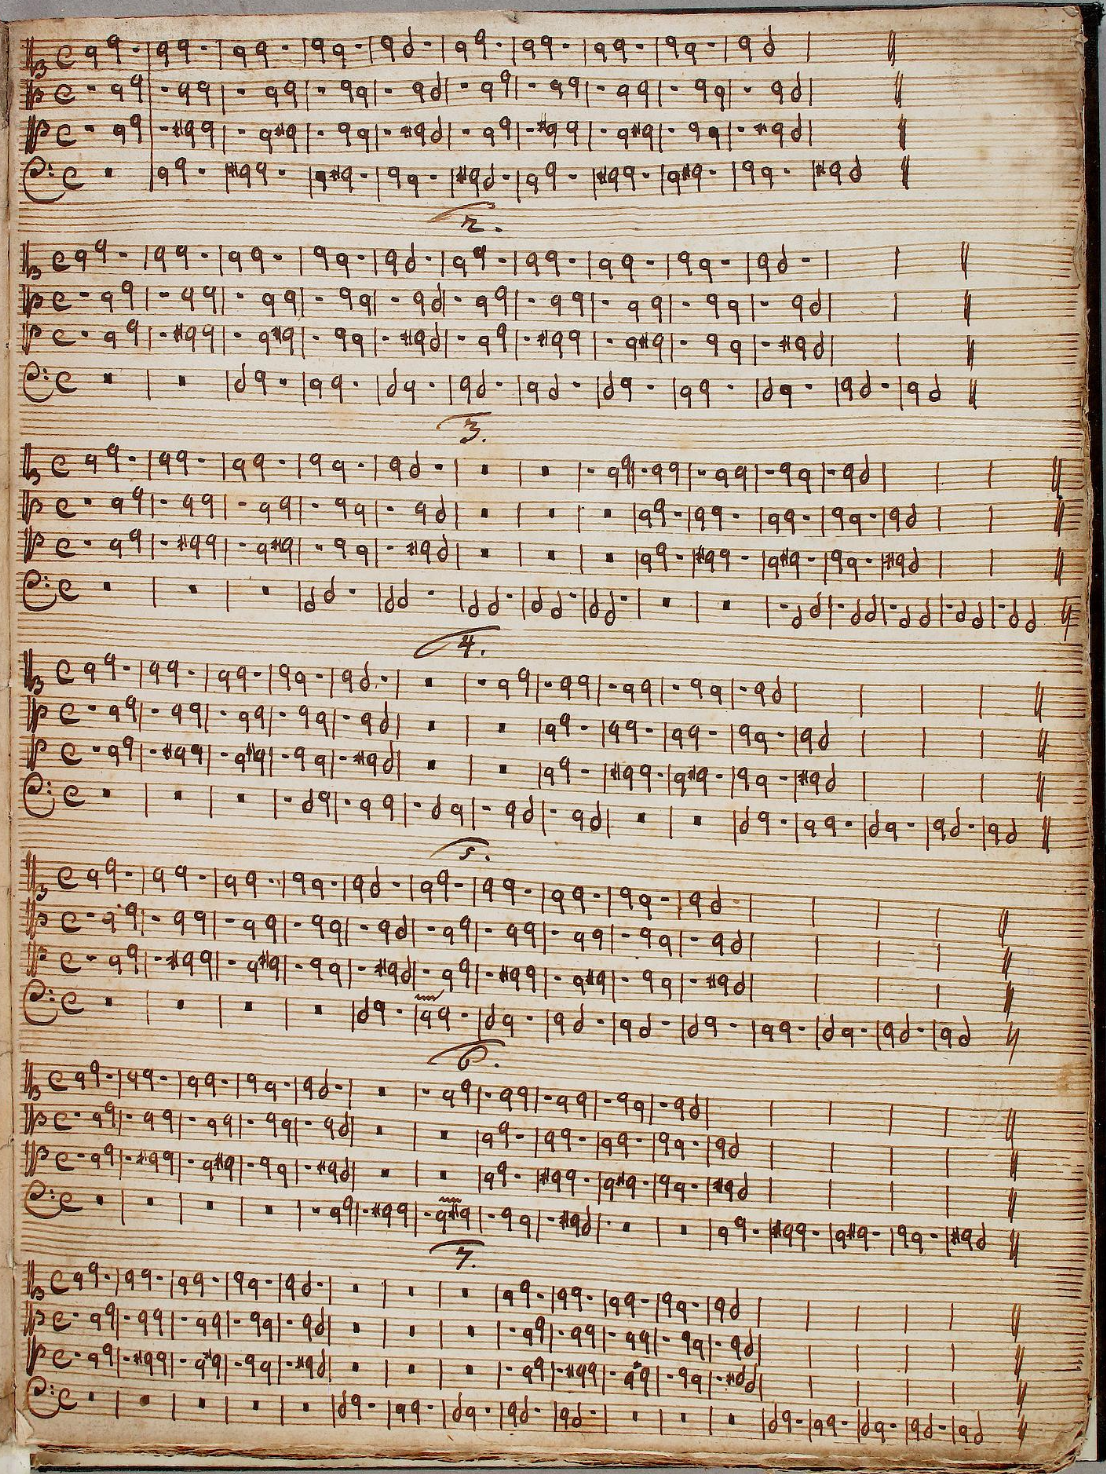 2.
3.
4.
5.
6.
7.